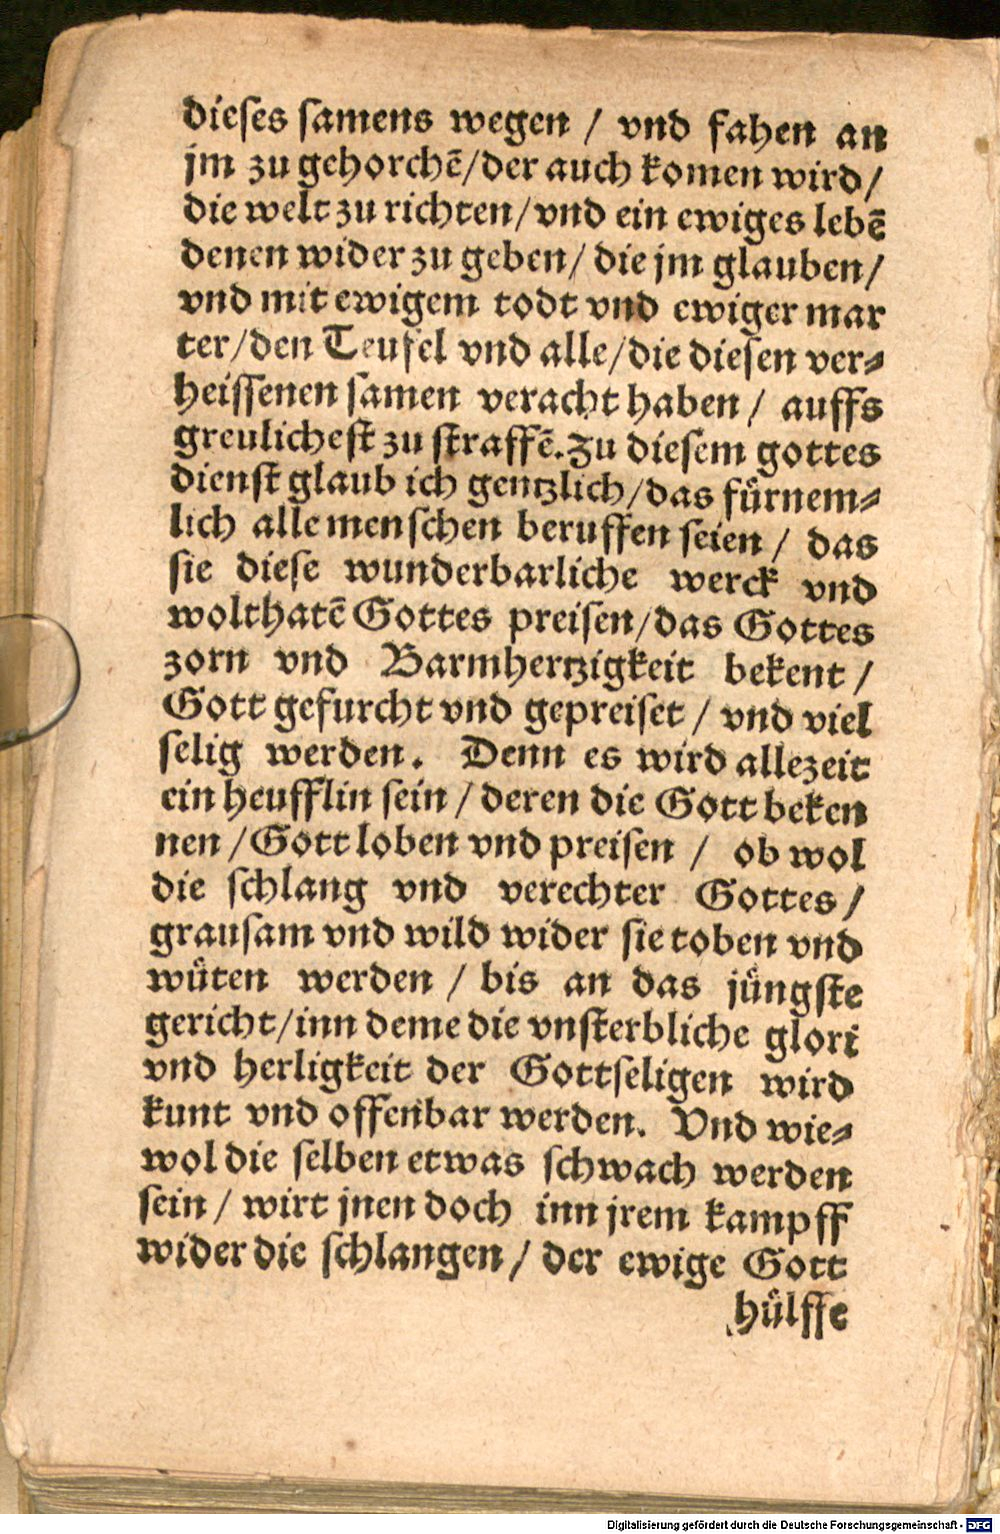 dieses samens wegen / vnd fahen an
jm zu gehorchē/der auch komen wird/
die welt zu richten/vnd ein ewiges lebē
denen wider zu geben/ die jm glauben/
vnd mit ewigem todt vnd ewiger mar
ter/den Teufel vnd alle/die diesen ver⸗
heissenen samen veracht haben / auffs
greulichest zu straffē. Zu diesem gottes
dienst glaub ich gentzlich/das fürnem⸗
lich alle menschen beruffen seien / das
sie diese wunderbarliche werck vnd
wolthatē Gottes preisen/das Gottes
zorn vnd Barmhertzigkeit bekent /
Gott gefurcht vnd gepreiset / vnd viel
selig werden. Denn es wird allezeit
ein heufflin sein / deren die Gott beken
nen /Gott loben vnd preisen / ob wol
die schlang vnd verechter Gottes /
grausam vnd wild wider sie toben vnd
wüten werden / bis an das jüngste
gericht/inn deme die vnsterbliche glori
vnd herligkeit der Gottseligen wird
kunt vnd offenbar werden. Vnd wie⸗
wol die selben etwas schwach werden
sein / wirt jnen doch inn jrem kampff
wider die schlangen / der ewige Gott
hülffe
Digitalisierung gefördert durch die Deutsche Forschungsgemeinschaft - DFG